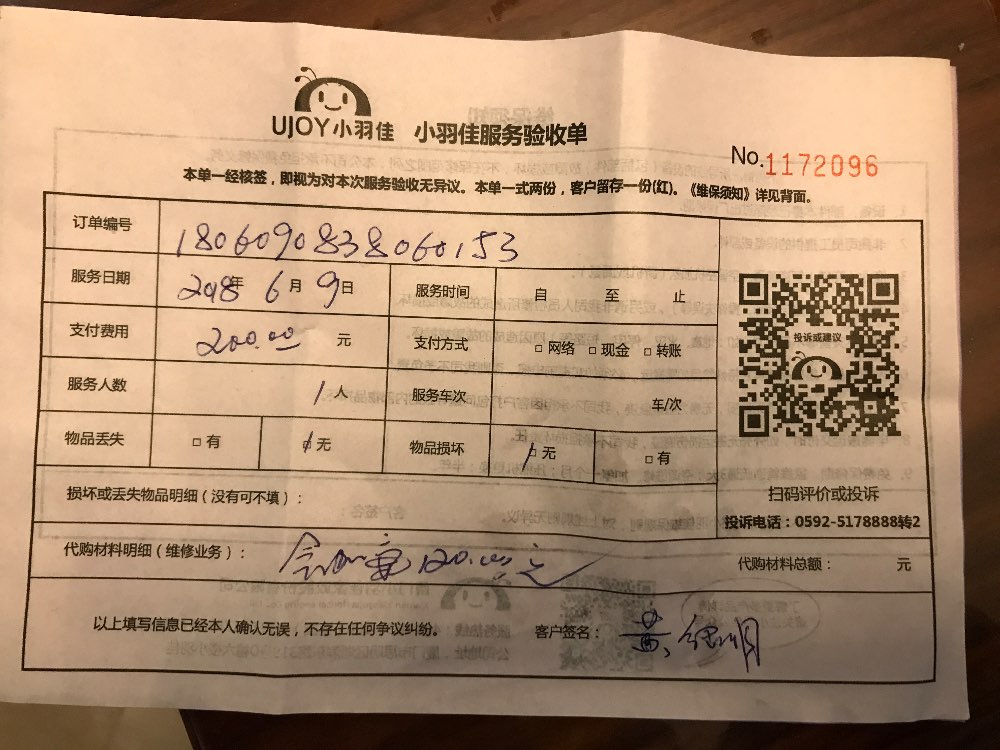 UJOY小羽佳 小羽佳服务验收单
No.1172096
本单一经核签，即视为对本次服务验收无异议。本单一式两份，客户留存一份(红)。《维保须知》详见背面。
订单编号 1806090838060153
服务日期 2018年 6月 9日 服务时间 自 至 止
支付费用 200.00 元 支付方式 □网络 □现金 □转账
服务人数 1人 服务车次 车/次
物品丢失 □有 □无 物品损坏 □无 □有
投诉或建议
扫码评价或投诉
投诉电话：0592-5178888转2
损坏或丢失物品明细（没有可不填）：
代购材料明细（维修业务）： 120.00元 代购材料总额： 元
以上填写信息已经本人确认无误，不存在任何争议纠纷。 客户签名： 黄